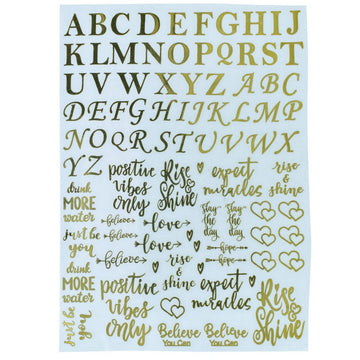 ABCDEFGHIJ
KLMNOPQRST
UVWXYZ ABC
DEFGHIJKLMP
NOQRSTUVWX
YZ
positive
vibes
only
Rise &
Shine
expect
miracles
rise
&
shine
drink
MORE
water
believe
love
slay
the
day
slay
the
day
just be
you
believe
love
hope
believe
rise
&
shine
hope
drink
MORE
water
positive
vibes
only
love
expect
miracles
Rise &
Shine
just be
you
Believe
You Can
Believe
You Can